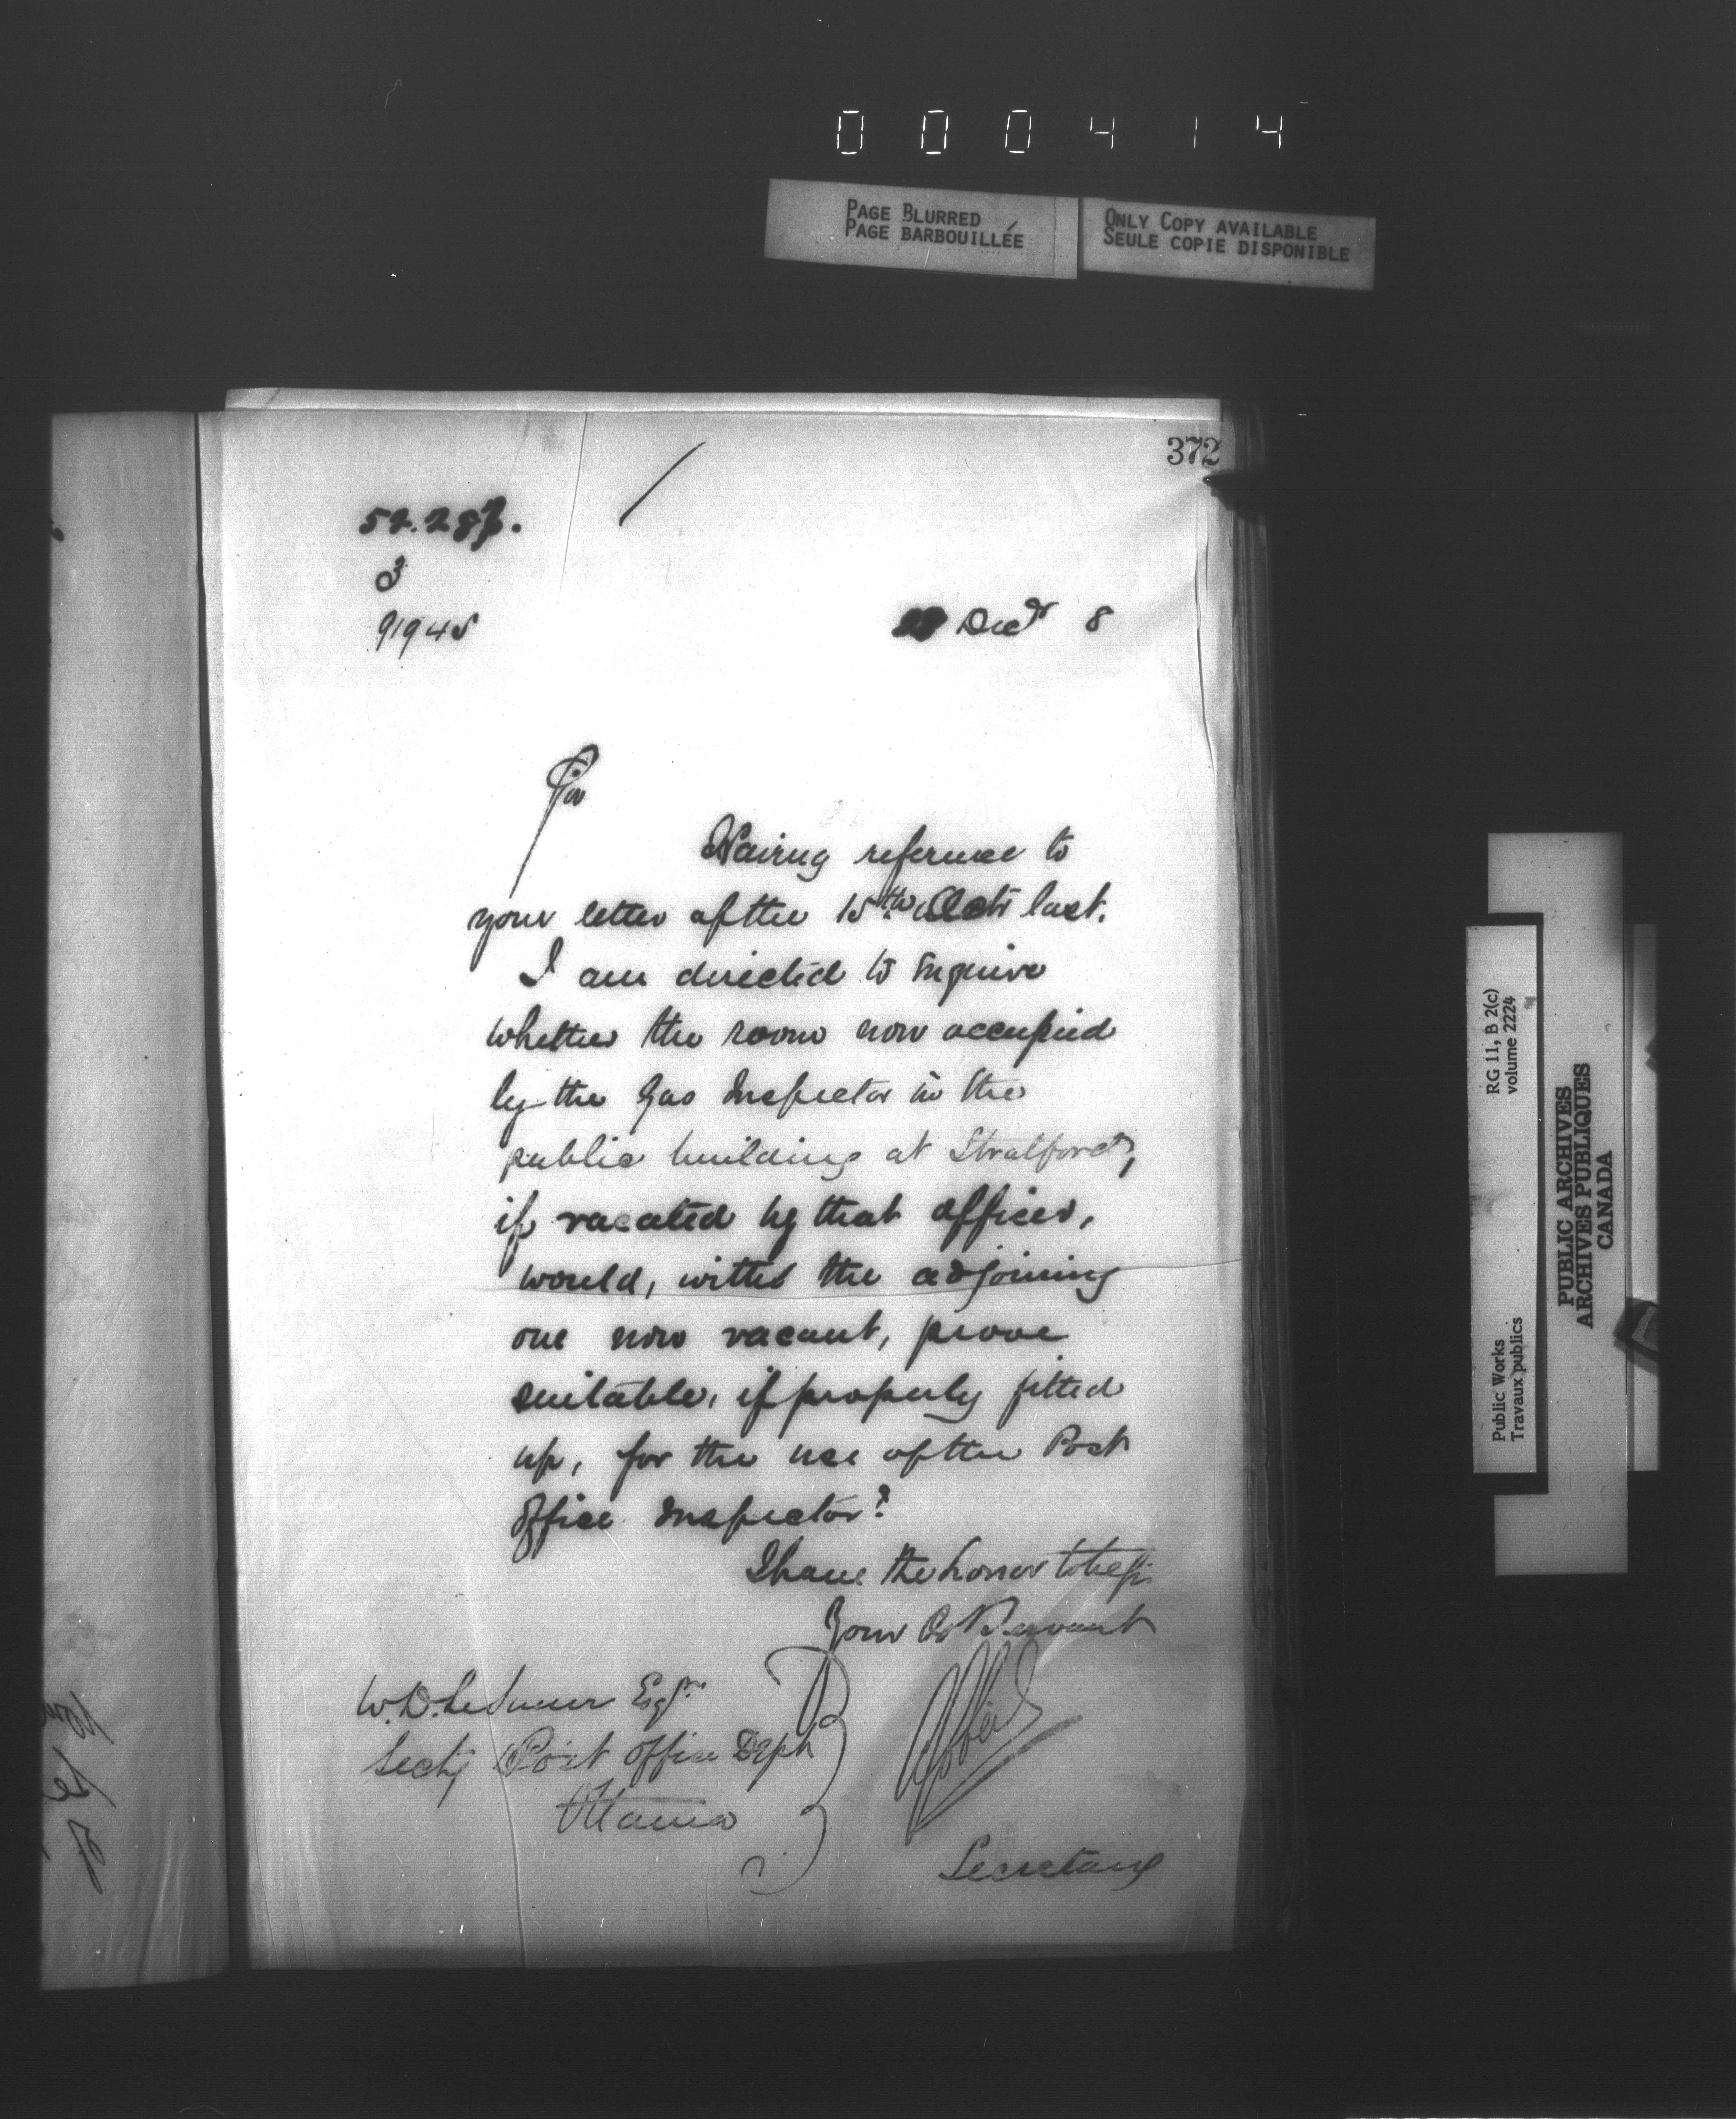 000414
PAGE BLURRED
PAGE BARBOUILLÉE
ONLY COPY AVAILABLE
SEULE COPIE DISPONIBLE
372
52.287.
3
91945
Decr 8
Sir
Having reference to
your letter of the 15th Octr last.
I am directed to inquire
whether the room now occupied
by the Gas Inspector in the
public building at Stratford,
if vacated by that officer,
would, with the adjoining
one now vacant, prove
suitable, if properly fitted
up, for the use of the Post
Office Inspector?
I have the honor to be Sir
Your Ob Servant
W. D. LeSueur Esqre
Secty Post Office Dept
Ottawa
Secretary
RG 11, B 2(c)
volume 2224
Public Works
Travaux publics
PUBLIC ARCHIVES
ARCHIVES PUBLIQUES
CANADA